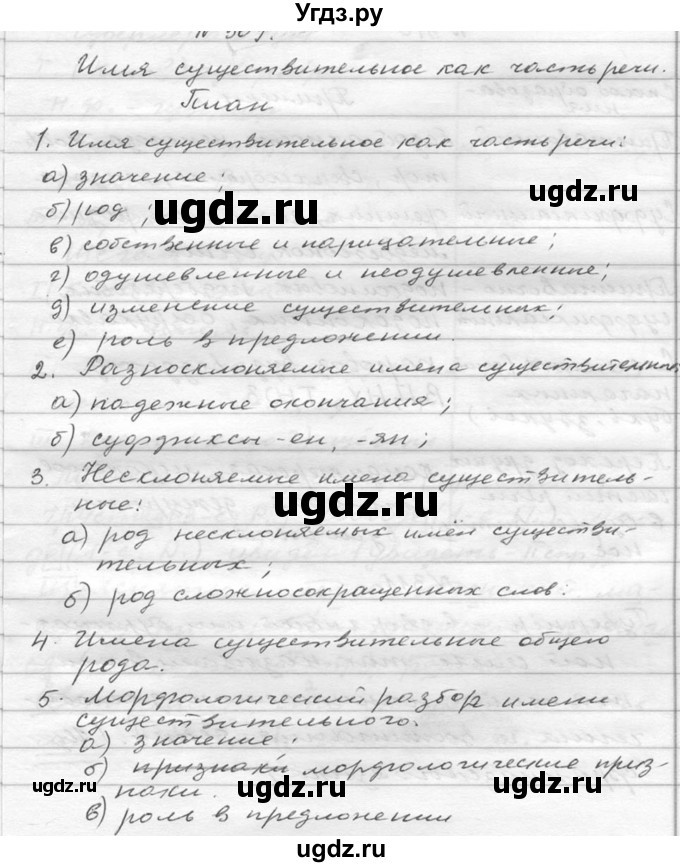 Угдз.ру
Имя существительное как часть речи.
План
1. Имя существительное как часть речи:
а) значение;
б) род;
ugdz.ru
ugdz.ru
в) собственные и нарицательные;
г) одушевленные и неодушевленные;
д) изменение существительных;
е) роль в предложении.
2. Разносклоняемые имена существительные
а) падежные окончания;
б) суффиксы -ен, -ян;
3. Несклоняемые имена существитель-
ные:
ugdz.ru
а) род несклоняемых имён существи-
тельных;
б) род сложносокращенных слов.
4. Имена существительные общего
рода.
5. Морфологический разбор имени
существительного.
ugdz.ru
а) значение.
б) признаки морфологические приз-
наки.
ugdz.ru
ugdz.ru
в) роль в предложении
ugdz.ru